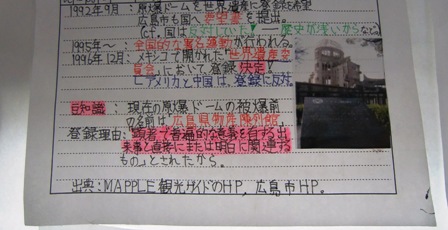 1992年9月：原爆ドームを世界遺産に登録を希望
広島市も国へ要望書を提出。
(cf. 国は反対していた! ― 歴史が浅いから)
1995年〜：全国的な署名運動が行われる。
1996年12月：メキシコで開かれた世界遺産委
員会において登録決定!
アメリカと中国は、登録に反対。
豆知識：現在の原爆ドームの被爆前
の名前は広島県物産陳列館。
登録理由：顕著で普遍的な意義を有する出
来事と直接にまたは明白に関連する
もの」とされたから。
出典：MAPPLE観光ガイドのHP，広島市HP.